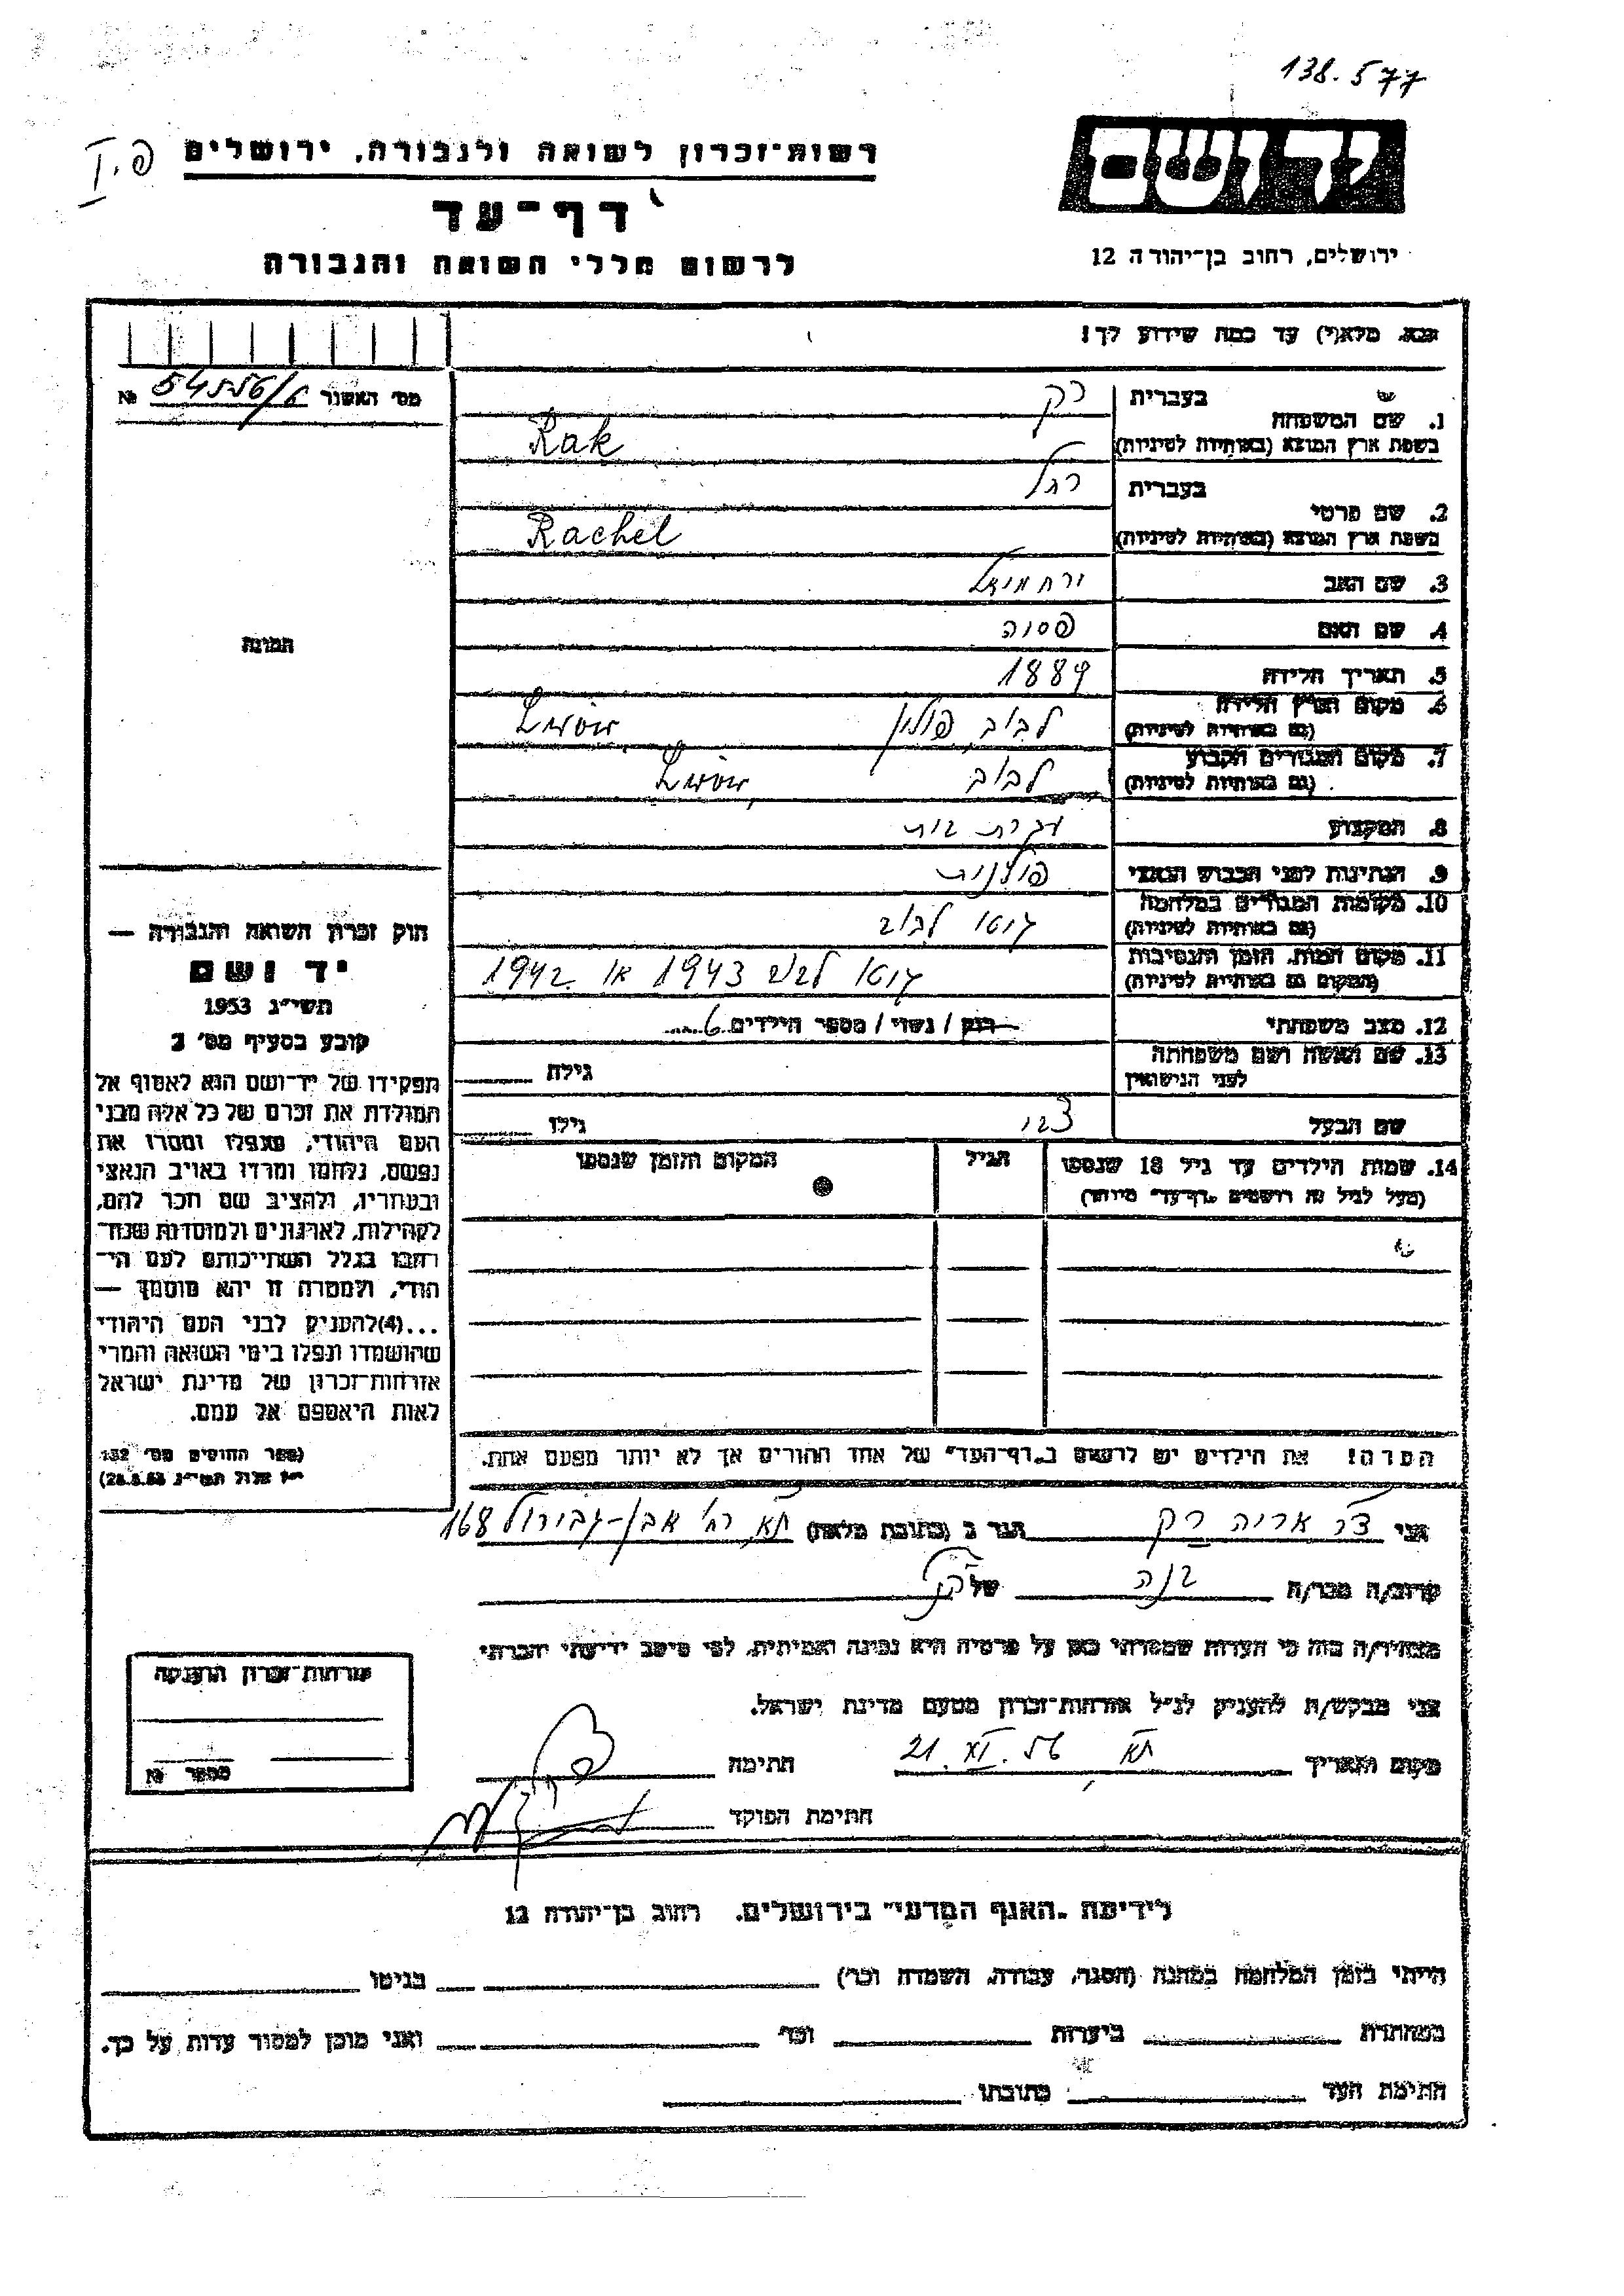 138.577
יד ושם
ירושלים, רחוב בן־יהודה 12
רשות־זכרון לשואה ולגבורה, ירושלים
דף־עד
לרשום חללי השואה והגבורה
אנא, מלא(י) עד כמה שידוע לך!
מס' האשור № 54556/6
1. שם המשפחה
בעברית רק
בשפת ארץ המוצא (באותיות לטיניות) Rak
2. שם פרטי
בעברית רחל
בשפת ארץ המוצא (באותיות לטיניות) Rachel
3. שם האב ירחמיאל
4. שם האם פסיה
5. תאריך הלידה 1889
6. מקום וארץ הלידה
(גם באותיות לטיניות) לבוב, פולין Lwów
7. מקום המגורים הקבוע
(גם באותיות לטיניות) לבוב Lwów
8. המקצוע עקרת בית
9. הנתינות לפני הכבוש הנאצי פולנית
10. מקומות המגורים במלחמה
(גם באותיות לטיניות) גיטו לבוב
11. מקום המות, הזמן והנסיבות
(המקום גם באותיות לטיניות) גיטו לבוב 1943 או 1942
12. מצב משפחתי רוק / נשוי / מספר הילדים 6
13. שם האשה ושם משפחתה
לפני הנישואין
גילה
שם הבעל
גילו
14. שמות הילדים עד גיל 18 שנספו
(מעל לגיל זה רושמים "דף־עד" מיוחד)
הגיל
המקום והזמן שנספו
הערה! את הילדים יש לרשום ב"דף־העד" של אחד ההורים אך לא יותר מפעם אחת.
התמונה
חוק זכרון השואה והגבורה —
יד ושם
תשי"ג 1953
קובע בסעיף מס' 2
תפקידו של יד־ושם הוא לאסוף אל
המולדת את זכרם של כל אלה מבני
העם היהודי, שנפלו ומסרו את
נפשם, נלחמו ומרדו באויב הנאצי
ובעוזריו, ולהציב שם וזכר להם,
לקהילות, לארגונים ולמוסדות שנח־
רבו בגלל השתייכותם לעם הי־
הודי, ולמטרה זו יהא מוסמך —
...(4)להעניק לבני העם היהודי
שהושמדו ונפלו בימי השואה והמרי
אזרחות־זכרון של מדינת ישראל
לאות היאספם אל עמם.
(ספר החוקים מס' 132
י"ז אלול תשי"ג 28.8.53)
אני ד"ר אריה רק הגר ב (כתובת מלאה) ת"א, רח' אבן־גבירול 168
קרוב/ה מכר/ה בנה של הנ"ל
מצהיר/ה בזה כי העדות שמסרתי כאן על פרטיה היא נכונה ואמיתית, לפי מיטב ידיעתי והכרתי
אני מבקש/ת להעניק לנ"ל אזרחות־זכרון מטעם מדינת ישראל.
מקום ותאריך ת"א, 21.XI.56 חתימה
חתימת הפוקד
אזרחות־זכרון הוענקה
מספר №
לידיעת "האגף המדעי" בירושלים. רחוב בן־יהודה 12
הייתי בזמן המלחמה במחנה (הסגר, עבודה, השמדה וכו') בגיטו
במחתרת ביערות וכו' ואני מוכן למסור עדות על כך.
חתימת העד כתובתו